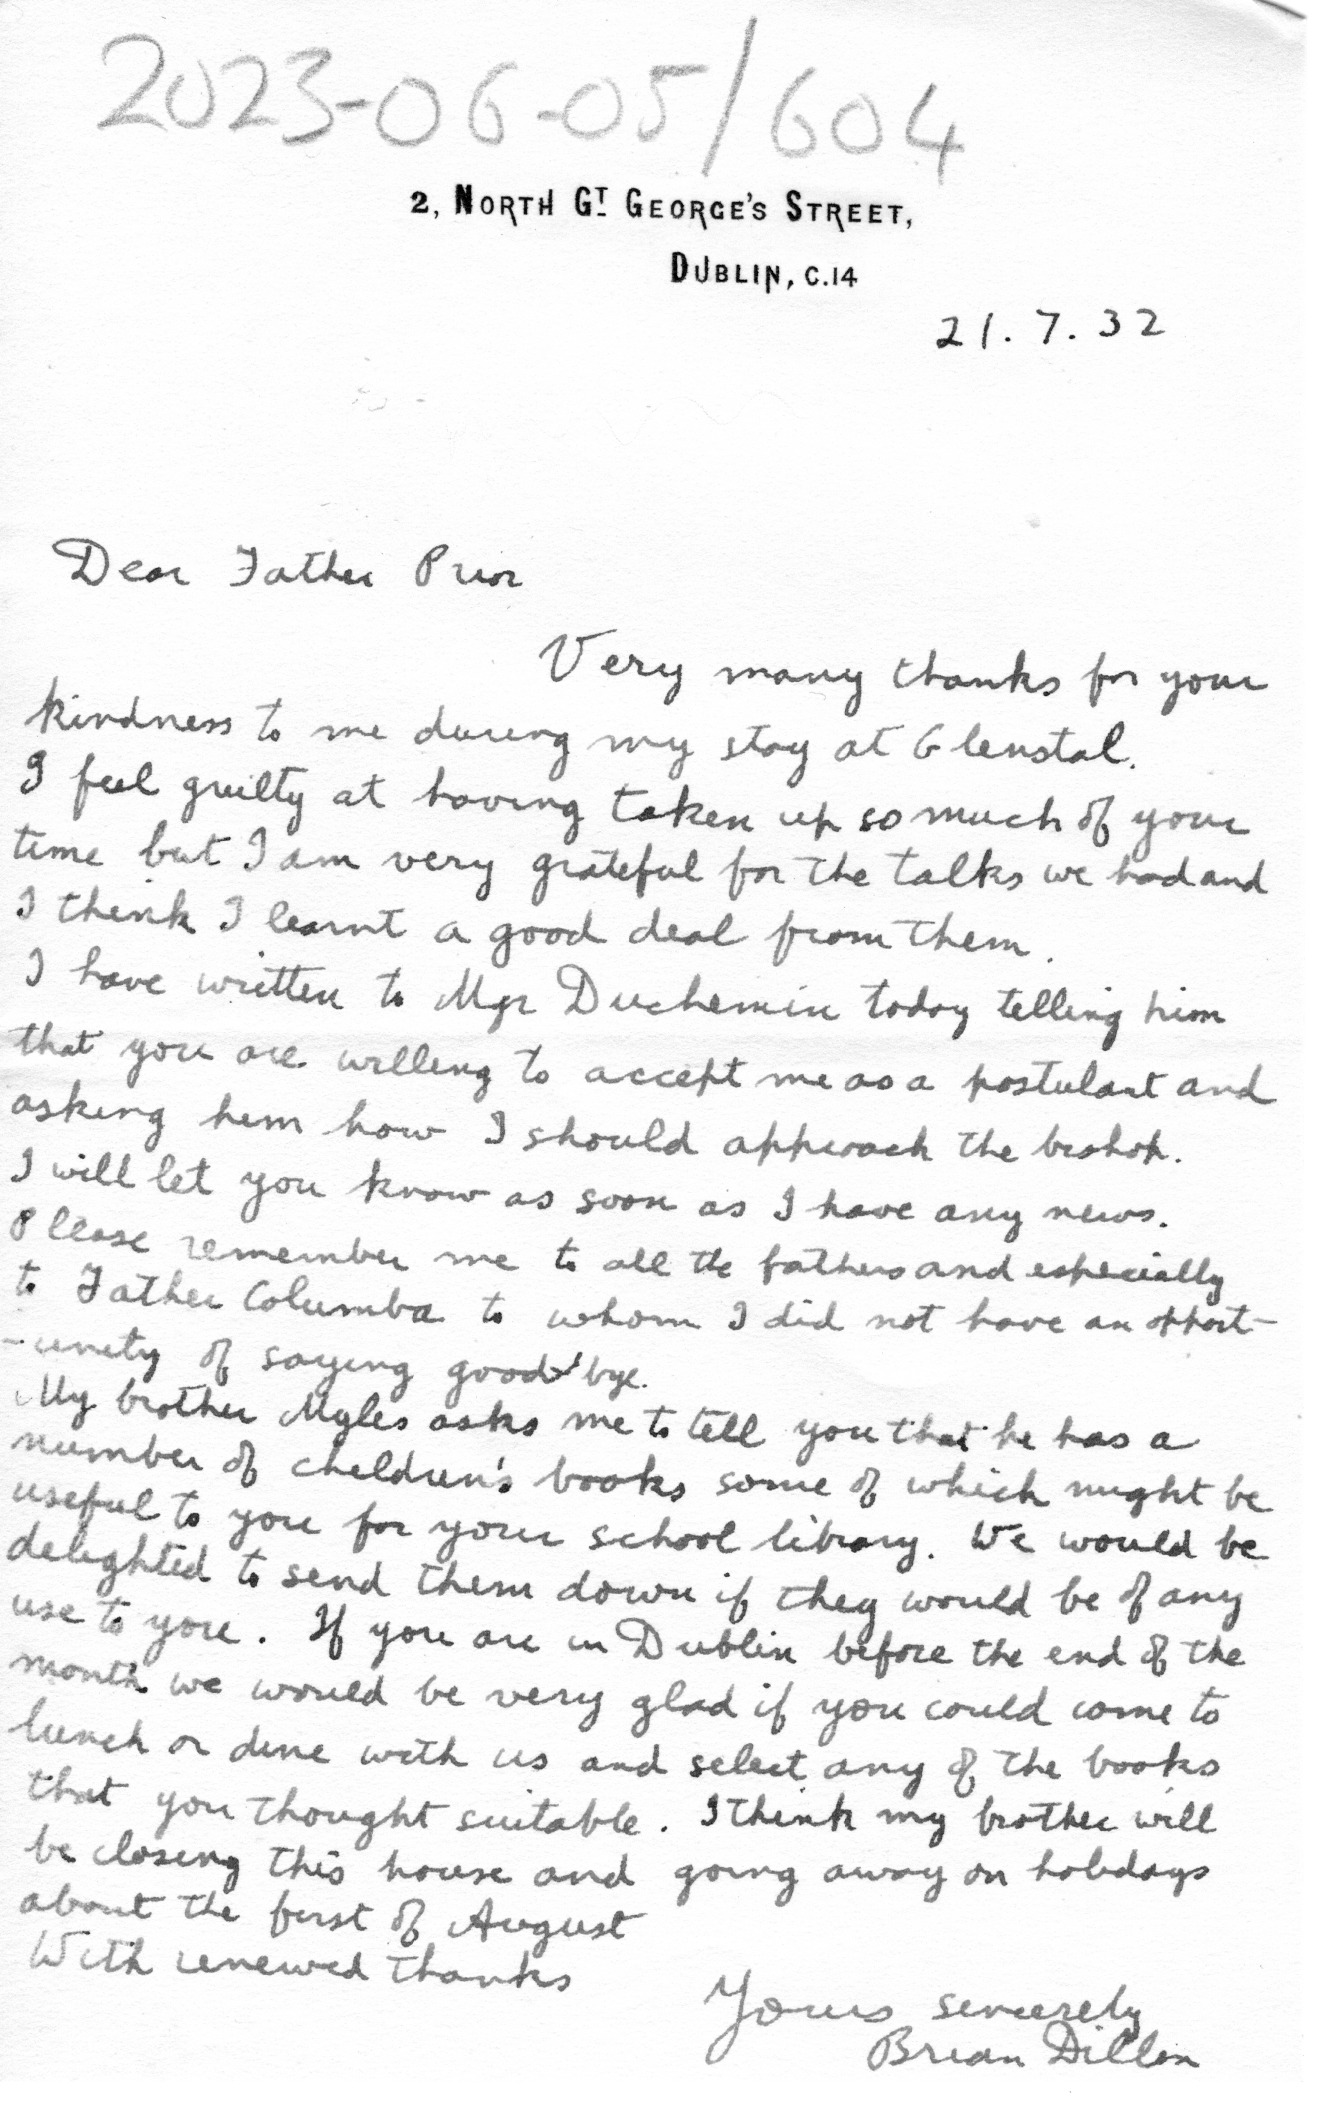 2023-06-05/604
2, NORTH GT GEORGE'S STREET,
DUBLIN, C.14
21. 7. 32
Dear Father Prior
Very many thanks for your
kindness to me during my stay at Glenstal.
I feel guilty at having taken up so much of your
time but I am very grateful for the talks we had and
I think I learnt a good deal from them.
I have written to Mgr Duchemin today telling him
that you are willing to accept me as a postulant and
asking him how I should approach the bishop.
I will let you know as soon as I have any news.
Please remember me to all the fathers and especially
to Father Columba to whom I did not have an opport-
-unity of saying good'bye.
My brother Myles asks me to tell you that he has a
number of children's books some of which might be
useful to you for your school library. We would be
delighted to send them down if they would be of any
use to you. If you are in Dublin before the end of the
month we would be very glad if you could come to
lunch or dine with us and select any of the books
that you thought suitable. I think my brother will
be closing this house and going away on holidays
about the first of August
With renewed thanks
Yours sincerely
Brian Dillon